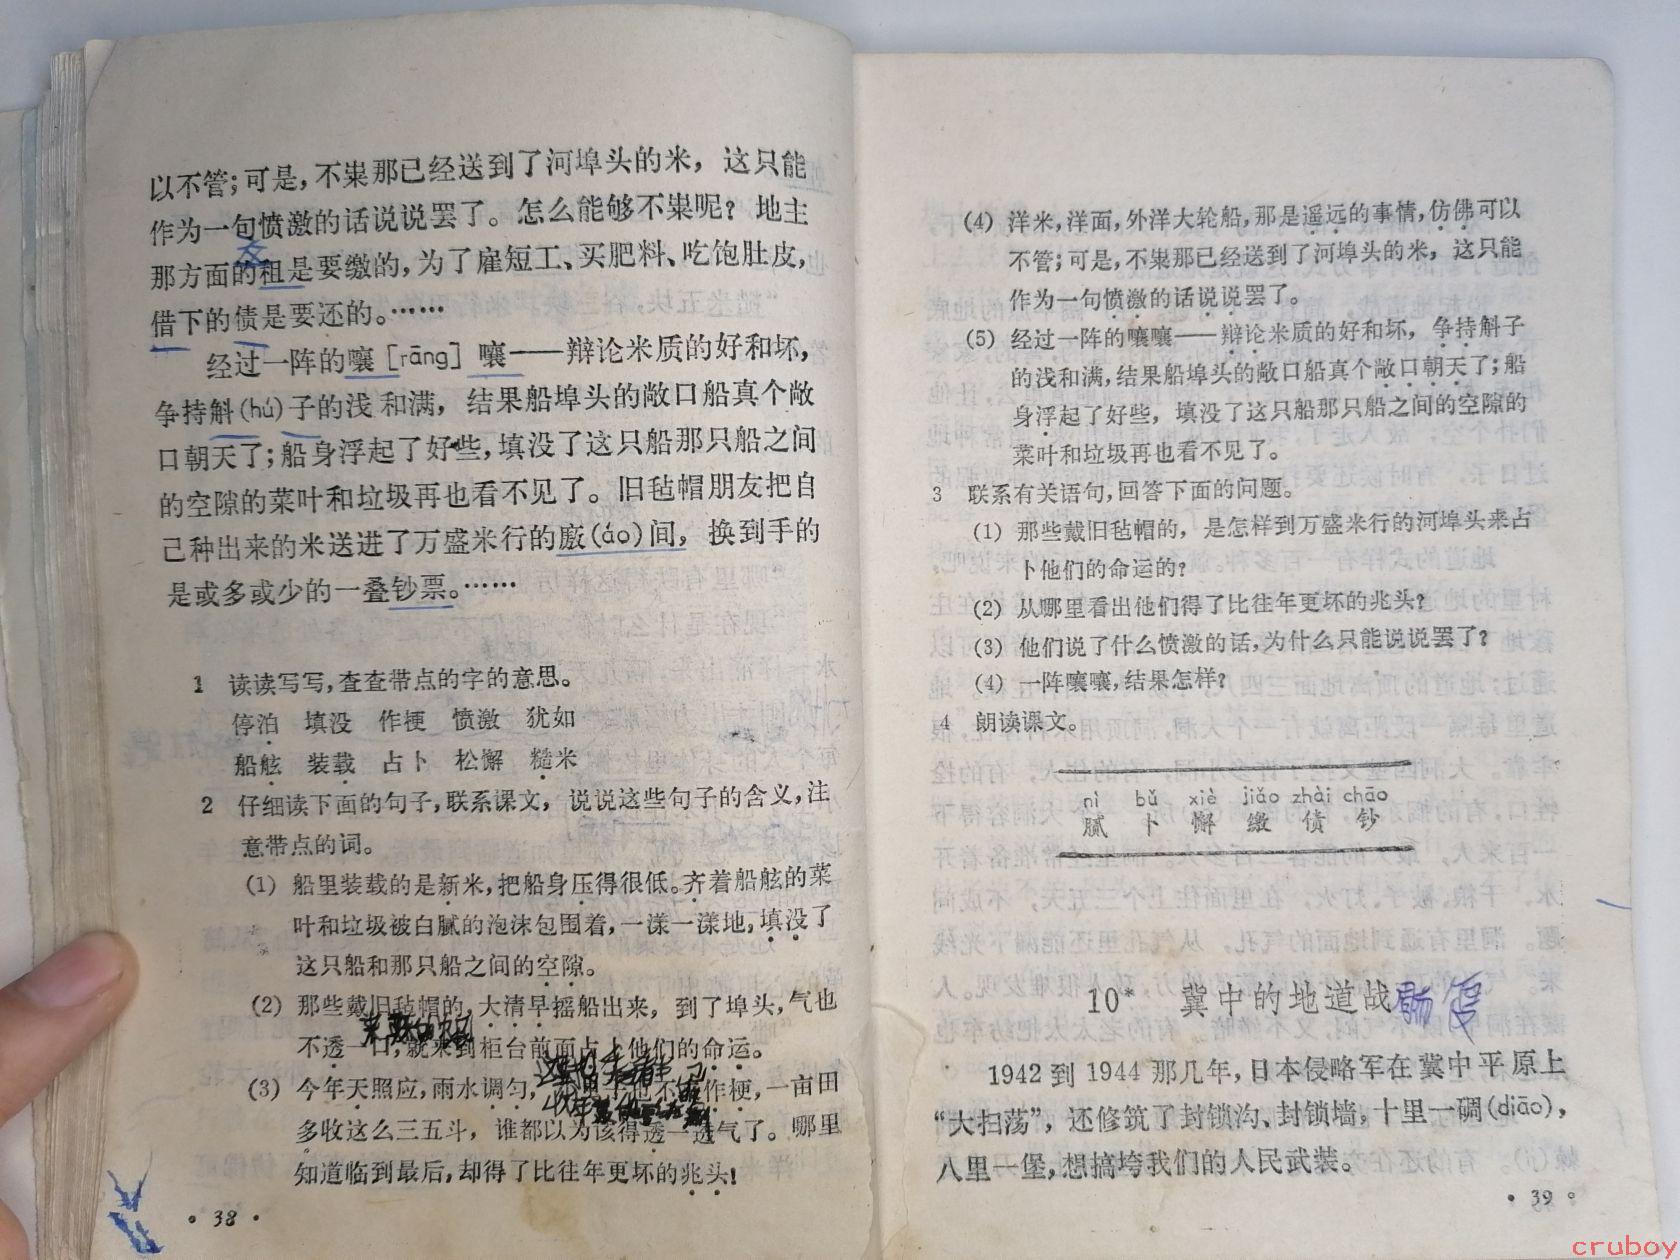 以不管;可是,不粜那已经送到了河埠头的米,这只能
作为一句愤激的话说说罢了。怎么能够不粜呢?地主
那方面的租是要缴的,为了雇短工、买肥料、吃饱肚皮,
借下的债是要还的。……
经过一阵的嚷[rāng]嚷——辩论米质的好和坏,
争持斛(hú)子的浅和满,结果船埠头的敞口船真个敞
口朝天了;船身浮起了好些,填没了这只船那只船之间
的空隙的菜叶和垃圾再也看不见了。旧毡帽朋友把自
己种出来的米送进了万盛米行的廒(áo)间,换到手的
是或多或少的一叠钞票。……
1 读读写写,查查带点的字的意思。
停泊 填没 作梗 愤激 犹如
船舷 装载 占卜 松懈 糙米
2 仔细读下面的句子,联系课文,说说这些句子的含义,注
意带点的词。
(1) 船里装载的是新米,把船身压得很低。齐着船舷的菜
叶和垃圾被白腻的泡沫包围着,一漾一漾地,填没了
这只船和那只船之间的空隙。
(2) 那些戴旧毡帽的,大清早摇船出来,到了埠头,气也
不透一口,就来到柜台前面占卜他们的命运。
(3) 今年天照应,雨水调匀,小虫子也不来作梗,一亩田
多收这么三五斗,谁都以为该得透一透气了。哪里
知道临到最后,却得了比往年更坏的兆头!
• 38 •
(4) 洋米,洋面,外洋大轮船,那是遥远的事情,仿佛可以
不管;可是,不粜那已经送到了河埠头的米,这只能
作为一句愤激的话说说罢了。
(5) 经过一阵的嚷嚷——辩论米质的好和坏,争持斛子
的浅和满,结果船埠头的敞口船真个敞口朝天了;船
身浮起了好些,填没了这只船那只船之间的空隙的
菜叶和垃圾再也看不见了。
3 联系有关语句,回答下面的问题。
(1) 那些戴旧毡帽的,是怎样到万盛米行的河埠头来占
卜他们的命运的?
(2) 从哪里看出他们得了比往年更坏的兆头?
(3) 他们说了什么愤激的话,为什么只能说说罢了?
(4) 一阵嚷嚷,结果怎样?
4 朗读课文。
nì bǔ xiè jiǎo zhài chāo
腻 卜 懈 缴 债 钞
10* 冀中的地道战
1942到1944那几年,日本侵略军在冀中平原上
“大扫荡”,还修筑了封锁沟、封锁墙,十里一碉(diāo),
八里一堡,想搞垮我们的人民武装。
• 39 •
cruboy